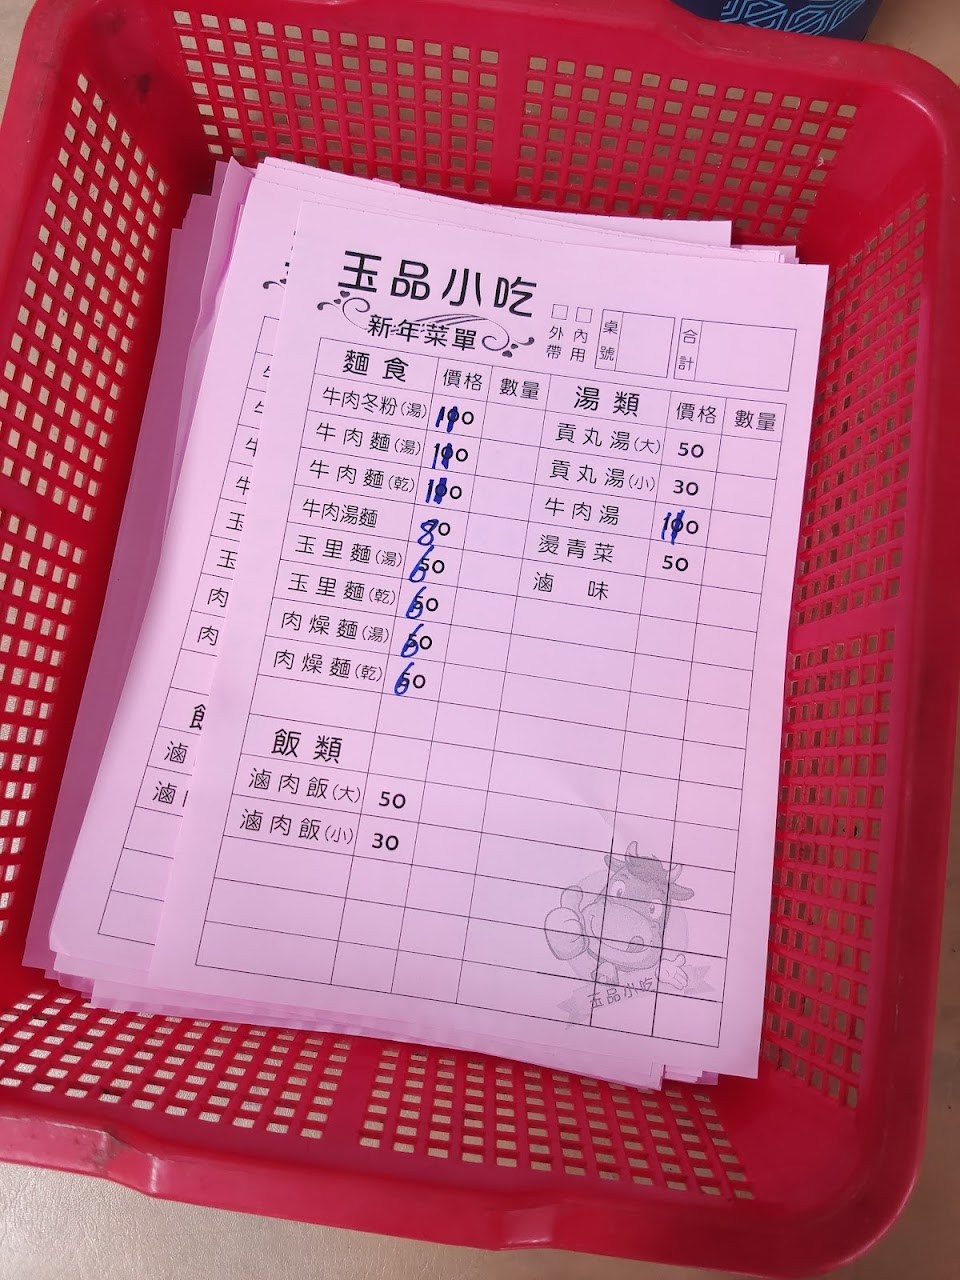 玉品小吃
新年菜單
外帶 內用 桌號 合計
麵食 價格 數量
牛肉冬粉(湯) 110
牛肉麵(湯) 110
牛肉麵(乾) 110
牛肉湯麵 80
玉里麵(湯) 60
玉里麵(乾) 60
肉燥麵(湯) 60
肉燥麵(乾) 60
飯類
滷肉飯(大) 50
滷肉飯(小) 30
湯類 價格 數量
貢丸湯(大) 50
貢丸湯(小) 30
牛肉湯 110
燙青菜 50
滷味
玉品小吃
牛
牛
牛
玉
玉
肉
肉
滷
滷